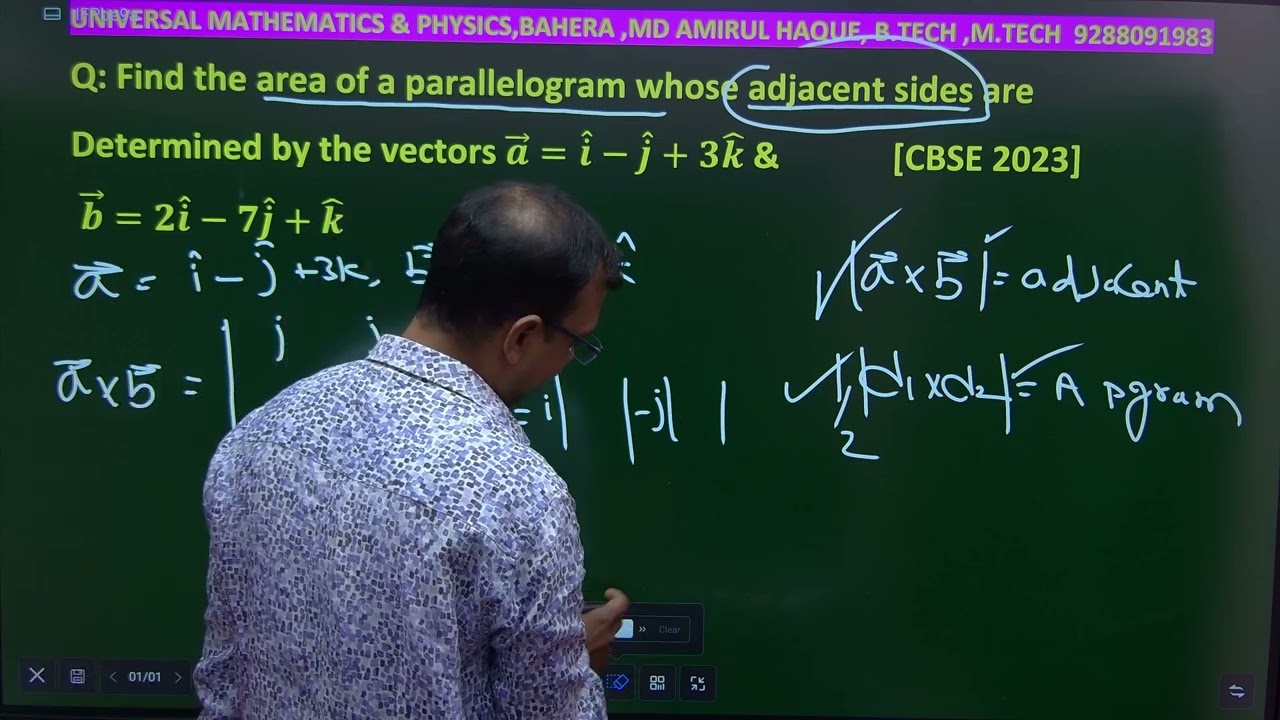 UNIVERSAL MATHEMATICS & PHYSICS,BAHERA ,MD AMIRUL HAQUE, B.TECH ,M.TECH 9288091983
Q: Find the area of a parallelogram whose adjacent sides are
Determined by the vectors a⃗ = î − ĵ + 3k̂ & [CBSE 2023]
b⃗ = 2î − 7ĵ + k̂
a⃗ = î − ĵ +3k, b⃗
|a⃗ × b⃗| = adjacent
a⃗ × b⃗ = | j
= i| | |-j| |
1/2 |d₁ × d₂| = A pgram
01/01
Clear